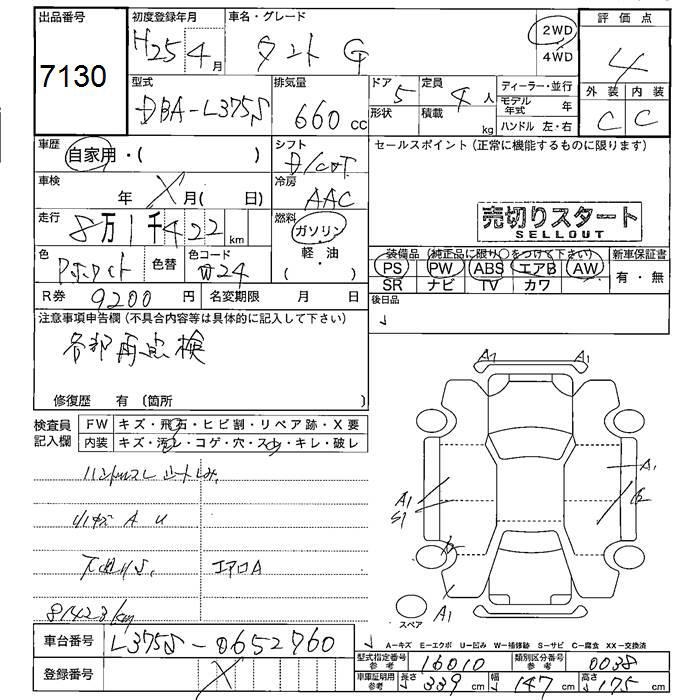 出品番号 初度登録年月 車名・グレード 評価点
7130 H25 4月 タント G 2WD 4WD 4
型式 排気量 ドア 定員 ディーラー・並行 外装 内装
DBA-L375S 660 cc 5 4人 モデル年式 年 C C
形状 積載 kg ハンドル 左・右
車歴 自家用・( ) シフト セールスポイント(正常に機能するものに限ります)
車検 年 月( 日) 冷房 AAC
走行 8万1千422 km 燃料 ガソリン 売切りスタート
軽・油 SELLOUT
( )
色 色替 色コード 装備品(純正品に限り○をつけて下さい) 新車保証書
PS PW ABS エアB AW 有・無
SR ナビ TV カワ
R券 9200円 名変期限 月 日 後日品
注意事項申告欄(不具合内容等は具体的に記入して下さい)
各部再点検
修復歴 有(箇所 )
A1 A1
検査員 FW キズ・飛石・ヒビ割・リペア跡・X要
記入欄 内装 キズ・汚れ・コゲ・穴・スレ・キレ・破レ
A1
A1
S1
エアロA
81423km
A1
スペア
A-キズ E-エクボ U-凹み W-補修跡 S-サビ C-腐食 XX-交換済
車台番号 L375S-0652760
型式指定番号 参考 16010 類別区分番号 参考 0038
登録番号
車庫証明用 参考 長さ 339 cm 幅 147 cm 高さ 175 cm